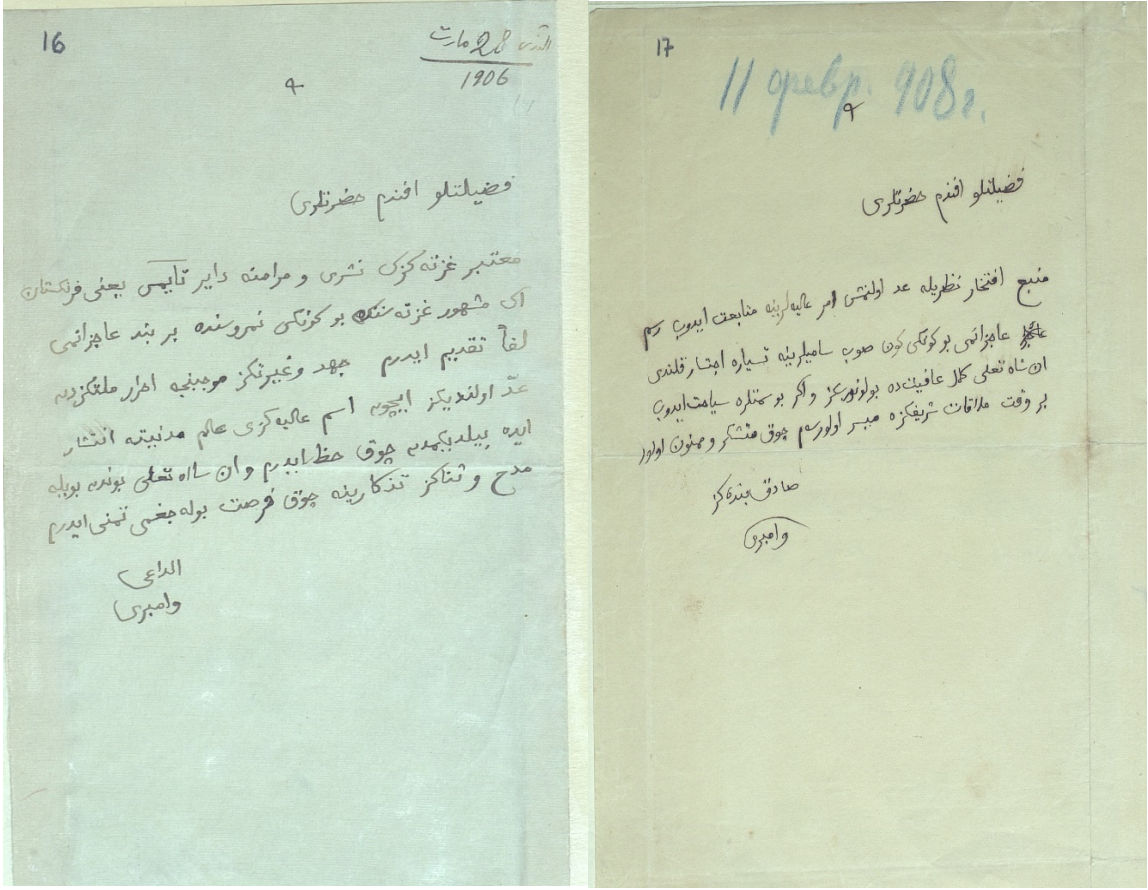 16
28 مارت
1906
فضیلتلو افندم حضرتلری
معتبر غزته کزک نشری و مرامنه دایر تایمس یعنی فرنکستان
اک مشهور غزته سنک بو کونکی نمروسنده بر بند عاجزانمی
لفاً تقدیم ایدرم جهد و غیرتکز موجبنجه احرار ملتکزدن
عدّ اولندیکز ایچون اسم عالیه کزی عالم مدنیته انتشار
ایده بیلدیکمدن چوق حظ ایدرم و ان شاه تعلی بوندن بویله
مدح و ثناکز تذکارینه چوق فرصت بوله جغمی تمنی ایدرم
الداعی
وامبری
17
11 февр. 908 г.
فضیلتلو افندم حضرتلری
منبع افتخار نظریله عد اولنمش امر عالیه لرینه متابعت ایدوب رسم
عاجزانمی بو کونکی کون صوب سامیلرینه تسیاره اجتسار قلندی
ان شاه تعلی کمال عافیت ده بولونورسز و اکر بو سمتلره سیاحت ایدوب
بر وقت ملاقات شریفکزه میسر اولورسم چوق متشکر و ممنون اولور
صادق بنده کز
وامبری